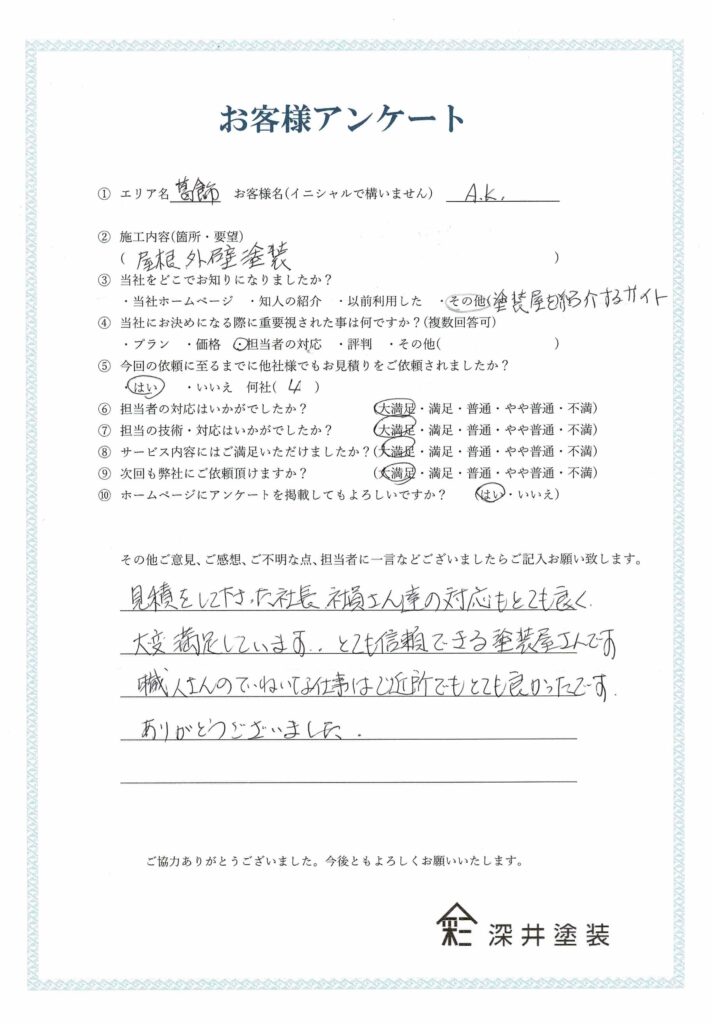 お客様アンケート
① エリア名 葛飾 お客様名(イニシャルで構いません) A.K.
② 施工内容(箇所・要望)
( 屋根 外壁塗装 )
③ 当社をどこでお知りになりましたか?
・当社ホームページ ・知人の紹介 ・以前利用した ・その他(塗装屋を紹介するサイト
④ 当社にお決めになる際に重要視された事は何ですか?(複数回答可)
・プラン ・価格 ・担当者の対応 ・評判 ・その他( )
⑤ 今回の依頼に至るまでに他社様でもお見積りをご依頼されましたか?
・はい ・いいえ 何社( 4 )
⑥ 担当者の対応はいかがでしたか? (大満足・満足・普通・やや普通・不満)
⑦ 担当の技術・対応はいかがでしたか? (大満足・満足・普通・やや普通・不満)
⑧ サービス内容にはご満足いただけましたか?(大満足・満足・普通・やや普通・不満)
⑨ 次回も弊社にご依頼頂けますか? (大満足・満足・普通・やや普通・不満)
⑩ ホームページにアンケートを掲載してもよろしいですか? (はい・いいえ)
その他ご意見、ご感想、ご不明な点、担当者に一言などございましたらご記入お願い致します。
見積をして下さった社長 社員さん達の対応もとても良く
大変満足しています。とても信頼できる塗装屋さんです
職人さんのていねいな仕事はご近所でもとても良かったです.
ありがとうございました.
ご協力ありがとうございました。今後ともよろしくお願いいたします。
深井塗装